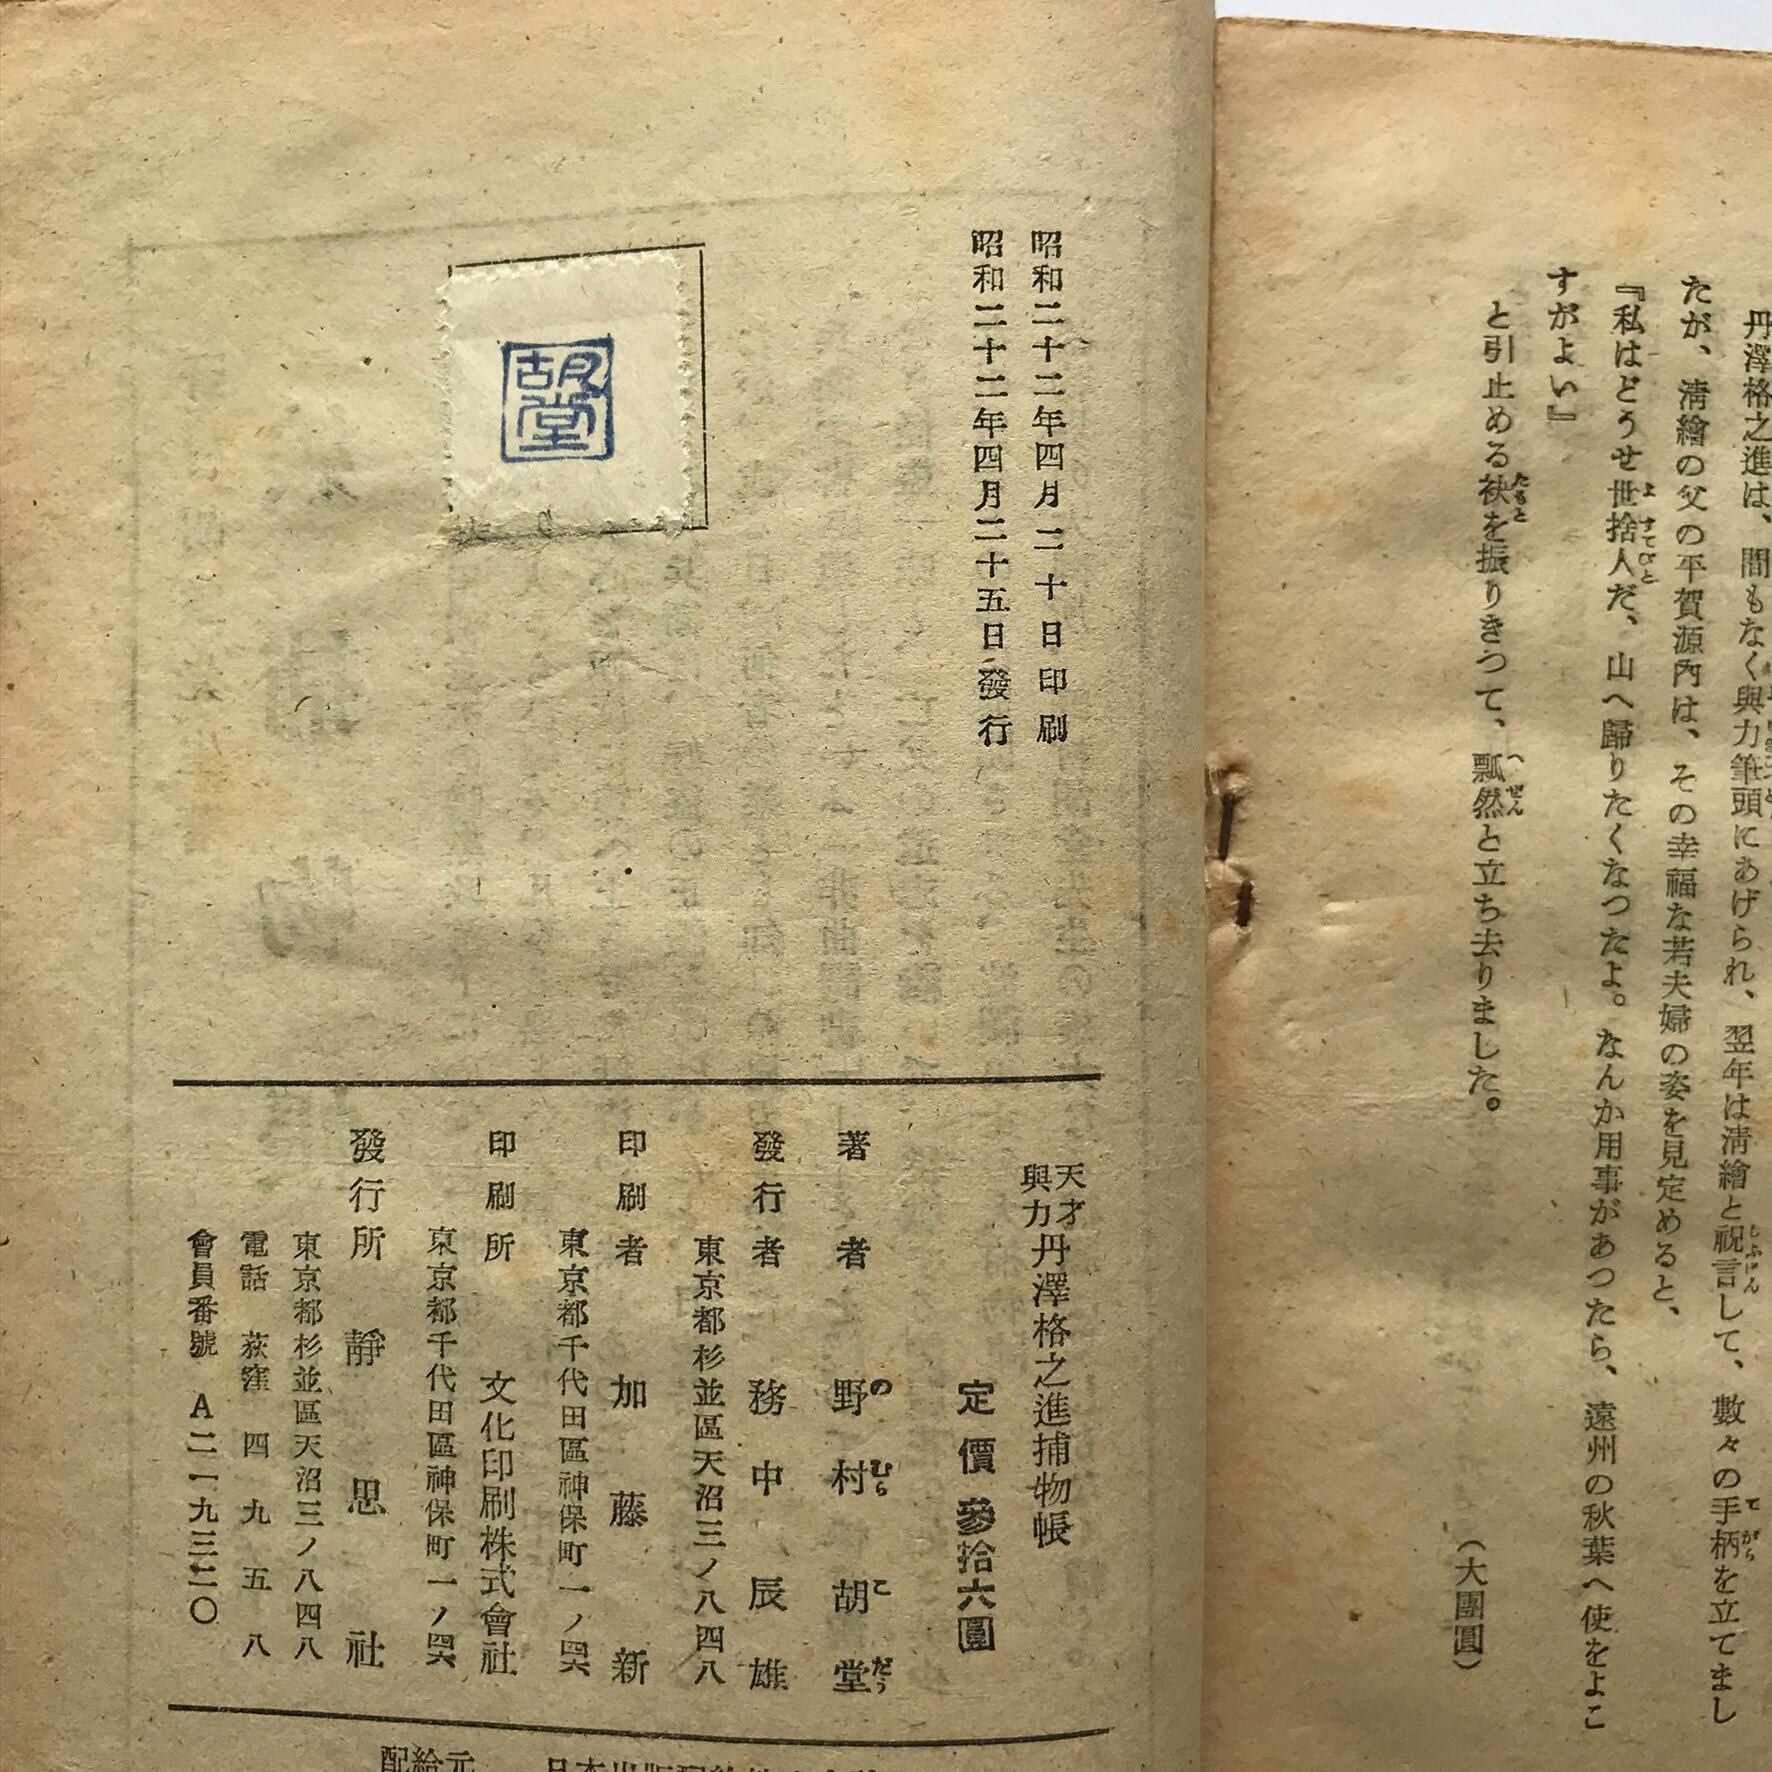 丹澤格之進は、間もなく與力筆頭にあげられ、翌年は淸繪と祝言して、數々の手柄を立てまし
たが、淸繪の父の平賀源內は、その幸福な若夫婦の姿を見定めると、
『私はどうせ世捨人だ、山へ歸りたくなつたよ。なんか用事があつたら、遠州の秋葉へ使をよこ
すがよい』
と引止める袂を振りきつて、瓢然と立ち去りました。
（大團圓）
昭和二十二年四月二十日印刷
昭和二十二年四月二十五日發行
胡堂
天才與力丹澤格之進捕物帳
定價參拾六圓
著者 野村胡堂
發行者 務中辰雄
東京都杉並區天沼三ノ八四八
印刷者 加藤新
東京都千代田區神保町一ノ四六
印刷所 文化印刷株式會社
東京都千代田區神保町一ノ四六
發行所 靜思社
東京都杉並區天沼三ノ八四八
電話 荻窪四九五八
會員番號 A二一九三二〇
配給元